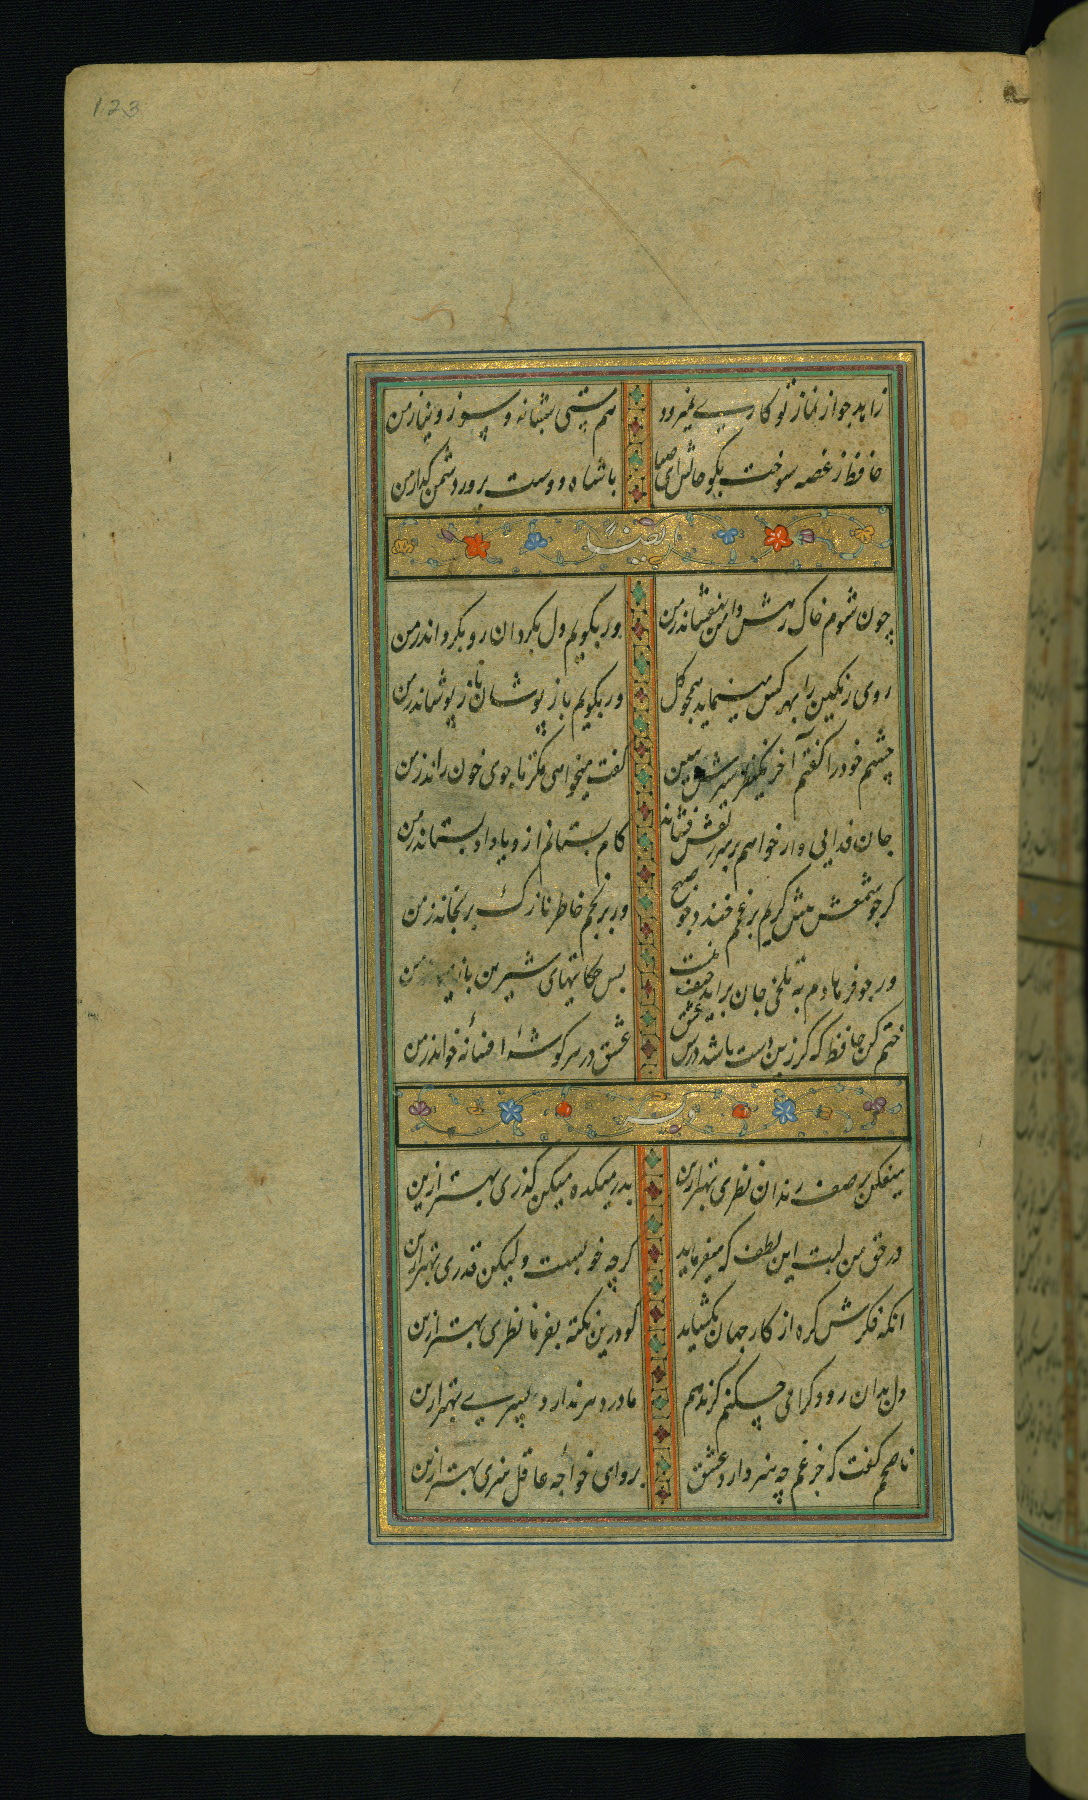 123
زاهد چو از نماز تو کاری نمیرود هم مستی شبانه و سوز و نیاز من
حافظ ز غصه سوخت بگو حالش ای صبا با شاه دوست پرور دشمن گداز من
ایضاً
چون شوم خاک رهش دامن بیفشاند ز من ور بگویم دل بگردان رو بگرداند ز من
روی رنگین را بهر کس مینماید همچو گل ور بگویم باز پوشان باز پوشاند ز من
چشم خود را گفتم آخر یکنظر سیرش ببین گفت میخواهی مگر تا جوی خون راند ز من
جان فدایی وار خواهم بر سر نقش فشاند کام بستانم ازو یا داد بستاند ز من
گر چو شمعش پیش گریم بر غمم خندد چو صبح ور برنجم خاطر نازک برنجاند ز من
ور چو فرهادم به تلخی جان براید حیف نیست بس حکایتهای شیرین باز میماند ز من
ختم کن حافظ که گر زین دست باشد درس عشق عشق در هر گوشهٔ افسانهٔ خواند ز من
وله
میفکن بر صف رندان نظری بهتر ازین بدر میکده میکن گذری بهتر ازین
در حق من لبت این لطف که میفرماید گر چه خوبست ولیکن قدری بهتر ازین
انکه فکرش گره از کار جهان بگشاید گو درین نکته بفرما نظری بهتر ازین
دل بدان رود گرامی چکنم گر ندهم مادر دهر ندارد پسری بهتر ازین
ناصحم گفت که جز غم چه هنر دارد عشق بروای خواجهٔ عاقل هنری بهتر ازین